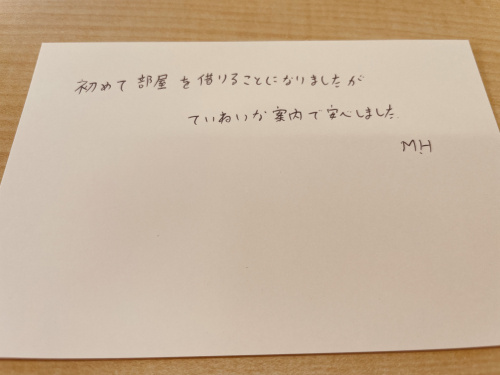 初めて部屋を借りることになりましたが
ていねいな案内で安心しました
M.H